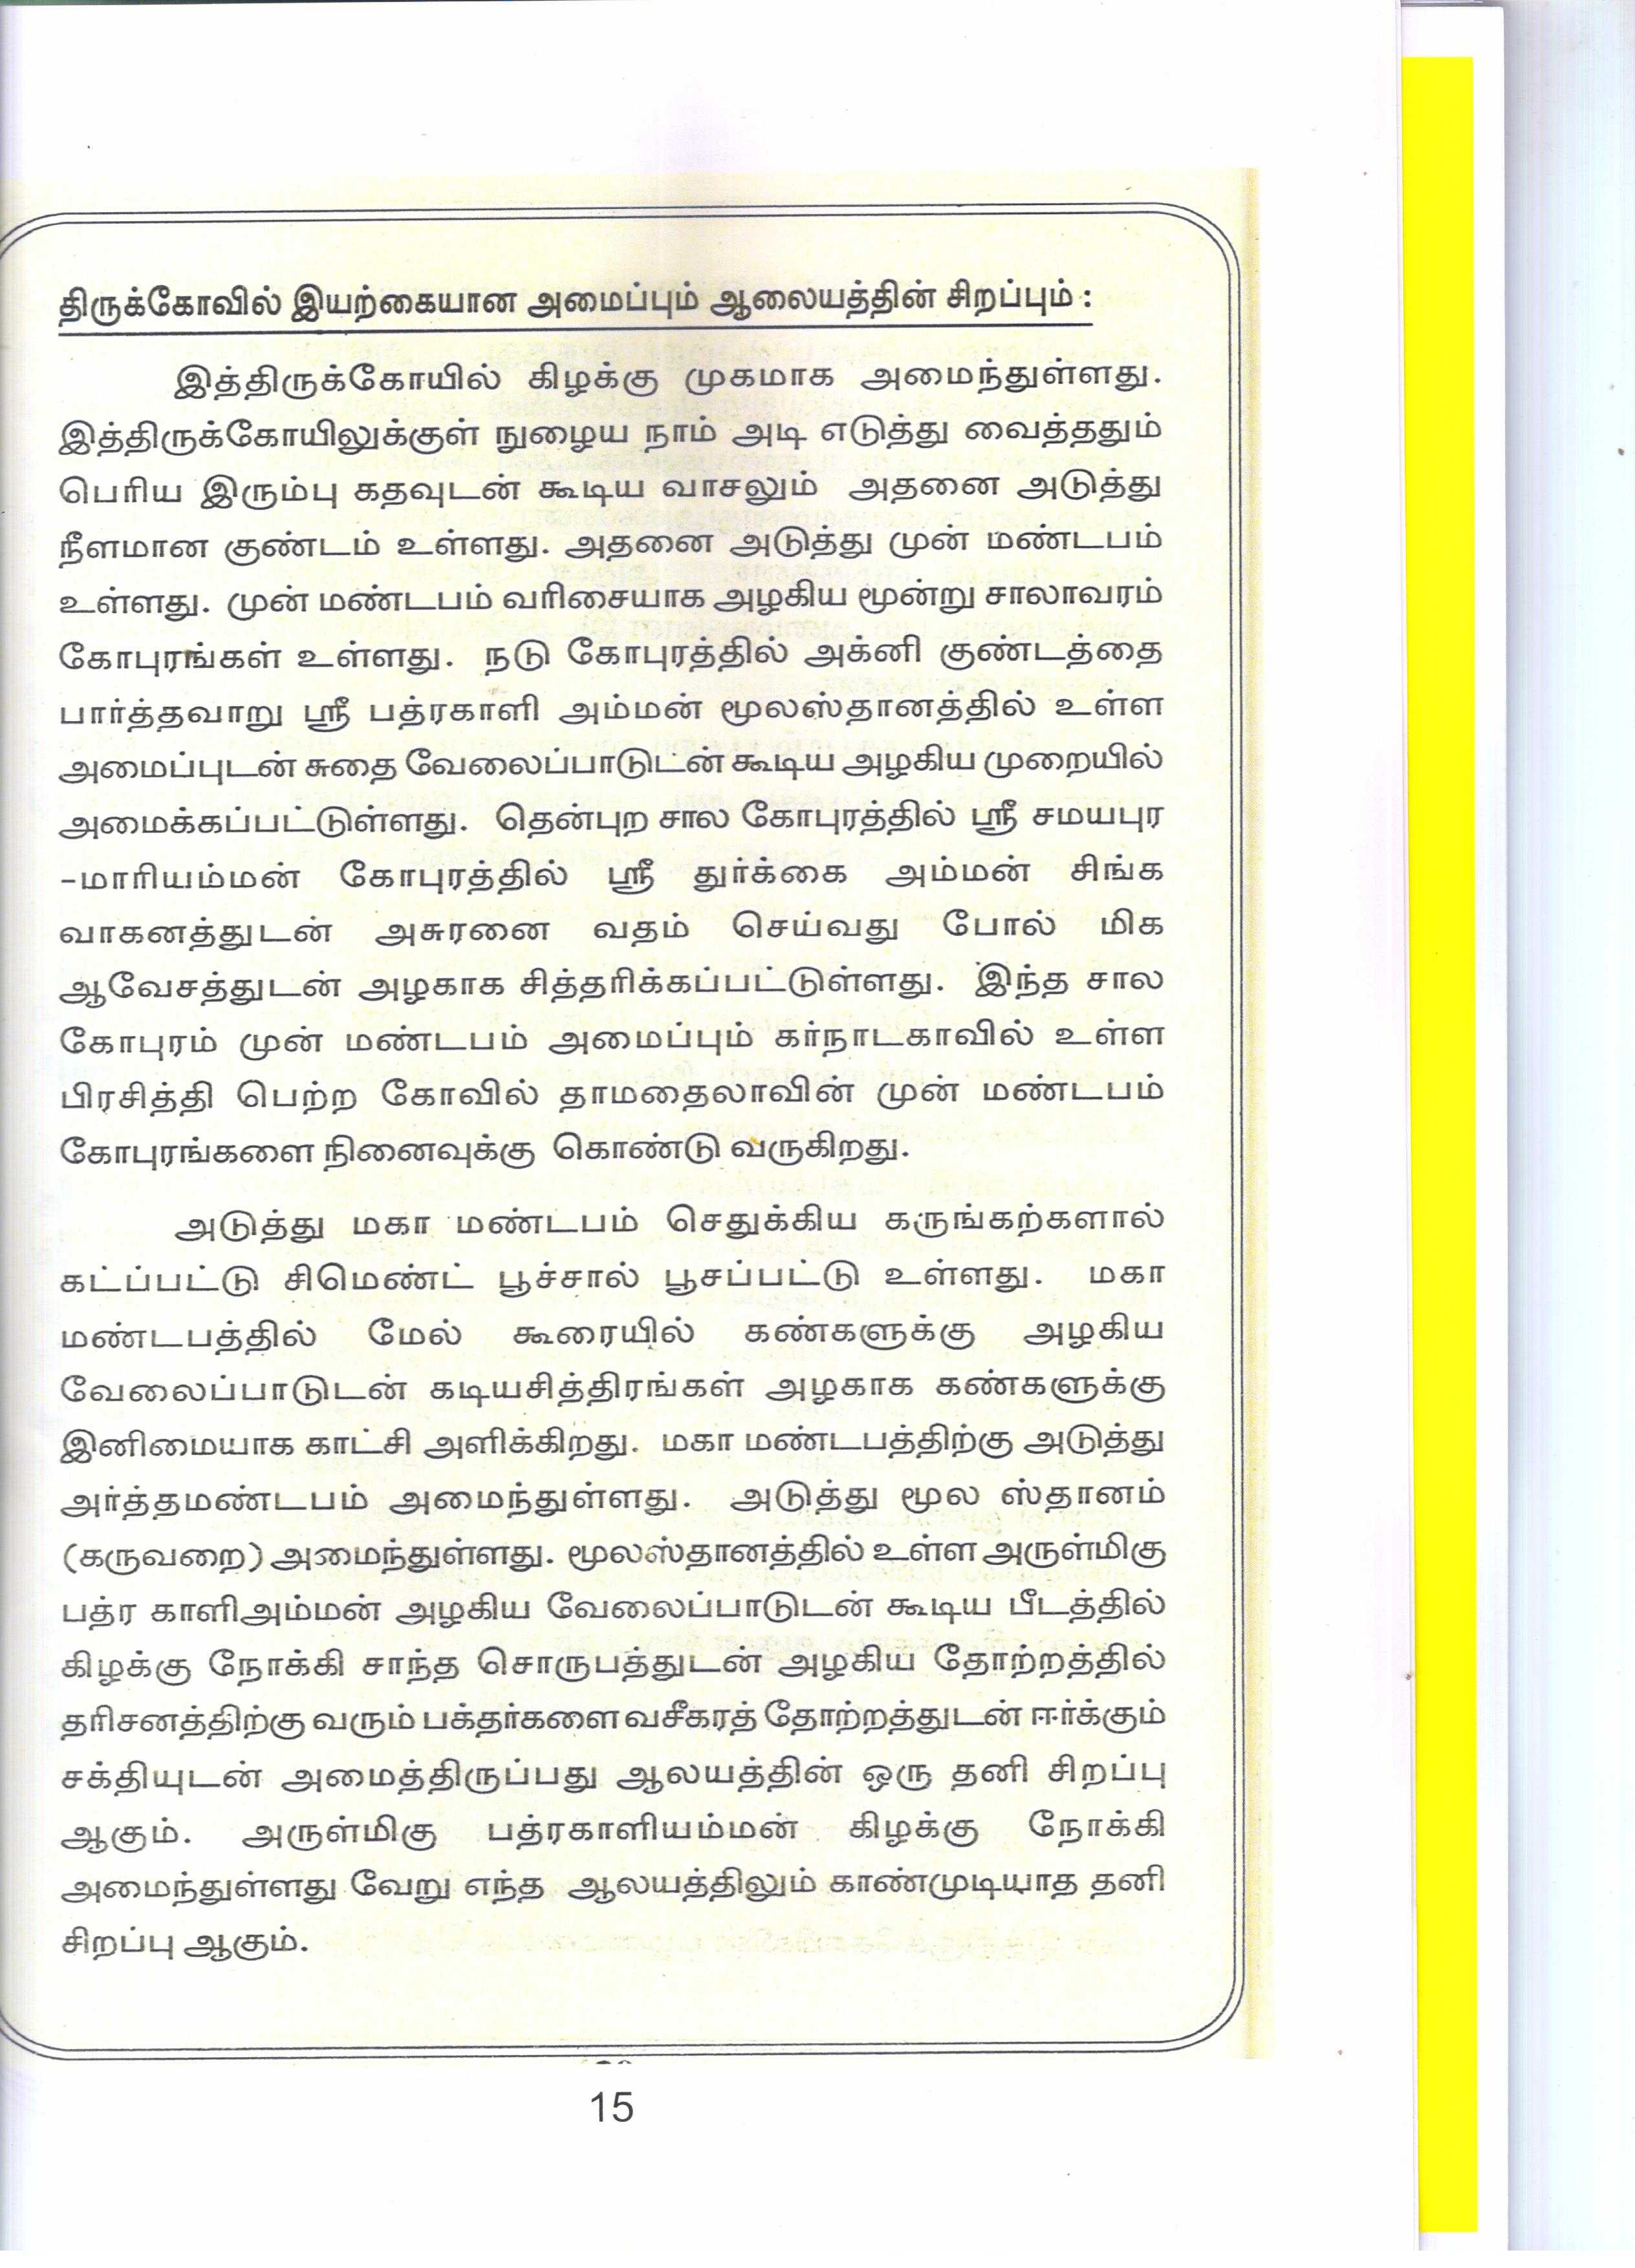 திருக்கோவில் இயற்கையான அமைப்பும் ஆலையத்தின் சிறப்பும் :
இத்திருக்கோயில் கிழக்கு முகமாக அமைந்துள்ளது.
இத்திருக்கோயிலுக்குள் நுழைய நாம் அடி எடுத்து வைத்ததும்
பெரிய இரும்பு கதவுடன் கூடிய வாசலும் அதனை அடுத்து
நீளமான குண்டம் உள்ளது. அதனை அடுத்து முன் மண்டபம்
உள்ளது. முன் மண்டபம் வரிசையாக அழகிய மூன்று சாலாவரம்
கோபுரங்கள் உள்ளது. நடு கோபுரத்தில் அக்னி குண்டத்தை
பார்த்தவாறு ஸ்ரீ பத்ரகாளி அம்மன் மூலஸ்தானத்தில் உள்ள
அமைப்புடன் சுதை வேலைப்பாடுடன் கூடிய அழகிய முறையில்
அமைக்கப்பட்டுள்ளது. தென்புற சால கோபுரத்தில் ஸ்ரீ சமயபுர
-மாரியம்மன் கோபுரத்தில் ஸ்ரீ துர்க்கை அம்மன் சிங்க
வாகனத்துடன் அசுரனை வதம் செய்வது போல் மிக
ஆவேசத்துடன் அழகாக சித்தரிக்கப்பட்டுள்ளது. இந்த சால
கோபுரம் முன் மண்டபம் அமைப்பும் கர்நாடகாவில் உள்ள
பிரசித்தி பெற்ற கோவில் தாமதைலாவின் முன் மண்டபம்
கோபுரங்களை நினைவுக்கு கொண்டு வருகிறது.
அடுத்து மகா மண்டபம் செதுக்கிய கருங்கற்களால்
கட்ப்பட்டு சிமெண்ட் பூச்சால் பூசப்பட்டு உள்ளது. மகா
மண்டபத்தில் மேல் கூரையில் கண்களுக்கு அழகிய
வேலைப்பாடுடன் கடியசித்திரங்கள் அழகாக கண்களுக்கு
இனிமையாக காட்சி அளிக்கிறது. மகா மண்டபத்திற்கு அடுத்து
அர்த்தமண்டபம் அமைந்துள்ளது. அடுத்து மூல ஸ்தானம்
(கருவறை) அமைந்துள்ளது. மூலஸ்தானத்தில் உள்ள அருள்மிகு
பத்ர காளிஅம்மன் அழகிய வேலைப்பாடுடன் கூடிய பீடத்தில்
கிழக்கு நோக்கி சாந்த சொருபத்துடன் அழகிய தோற்றத்தில்
தரிசனத்திற்கு வரும் பக்தர்களை வசீகரத் தோற்றத்துடன் ஈர்க்கும்
சக்தியுடன் அமைத்திருப்பது ஆலயத்தின் ஒரு தனி சிறப்பு
ஆகும். அருள்மிகு பத்ரகாளியம்மன் கிழக்கு நோக்கி
அமைந்துள்ளது வேறு எந்த ஆலயத்திலும் காண்முடியாத தனி
சிறப்பு ஆகும்.
15